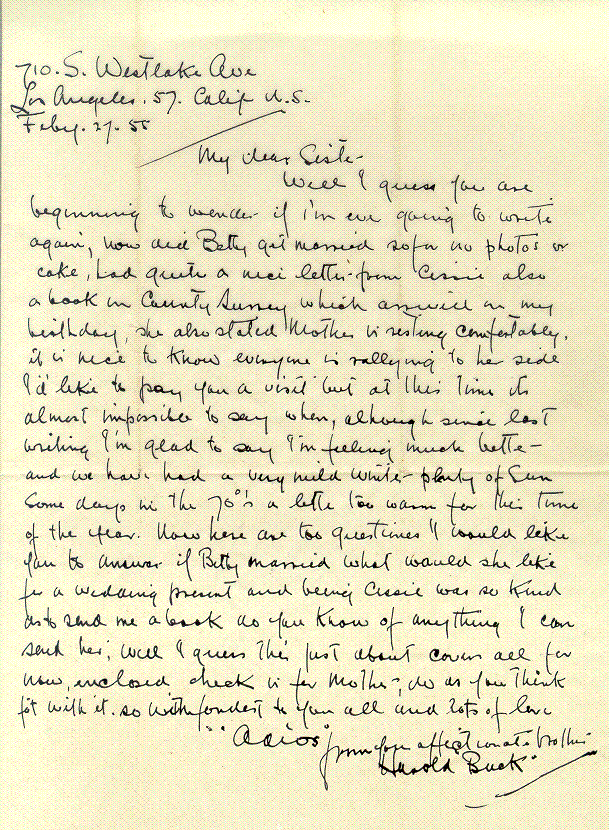 710. S. Westlake Ave
Los Angeles. 57. Calif U.S.
Feby. 27. 55
My dear Sister
Well I guess you are
beginning to wonder if I'm ever going to write
again, how did Betty get married so far no photos or
cake, had quite a nice letter from Cissie also
a book on County Surrey which arrived on my
birthday, she also stated Mother is resting comfortably,
it is nice to know everyone is rallying to her side
I'd like to pay you a visit but at this time its
almost impossible to say when, although since last
writing I'm glad to say I'm feeling much better
and we have had a very mild winter plenty of Sun
Some days in the 70°s a little too warm for this time
of the year. Now here are too questions I would like
you to answer if Betty married what would she like
for a wedding present and being Cissie was so kind
as to send me a book do you know of anything I can
send her, Well I guess this just about covers all for
now, enclosed check is for Mother, do as you think
fit with it. so with fondest to you all and lots of love
"Adios"
from your affectionate brother
Harold Buck